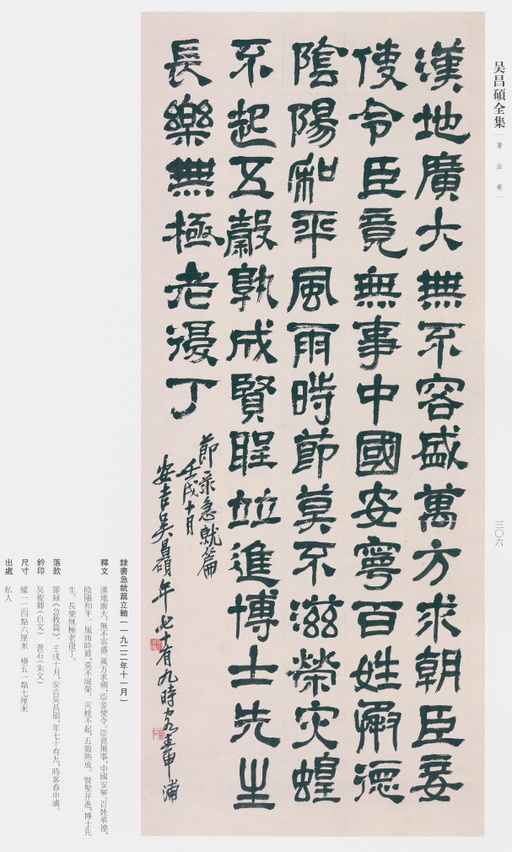 吴昌碩全集 書法卷
三〇六
漢地廣大無不容盛萬方求朝臣妾
使令臣竟無事中國安寧百姓承德
陰陽和平風雨時節莫不滋榮灾蝗
不起五穀孰成賢聖並進博士先生
長樂無極老復丁
節彔急就篇
壬戌十月
安吉吳昌碩年七十有九時客春申浦
隸書急就篇立軸(一九二二年十一月)
釋文 漢地廣大,無不容盛。萬方求朝,臣妾使令。臣竟無事,中國安寧。百姓承德,
陰陽和平。風雨時節,莫不滋榮。灾蝗不起,五穀熟成。賢聖并進,博士先
生。長樂無極老復丁。
落款 節録《急就篇》。壬戌十月,安吉吴昌碩,年七十有九,時客春申浦。
鈐印 吴俊卿(白文) 蒼石(朱文)
尺寸 縱一二四點六厘米 橫五一點七厘米
出處 私人